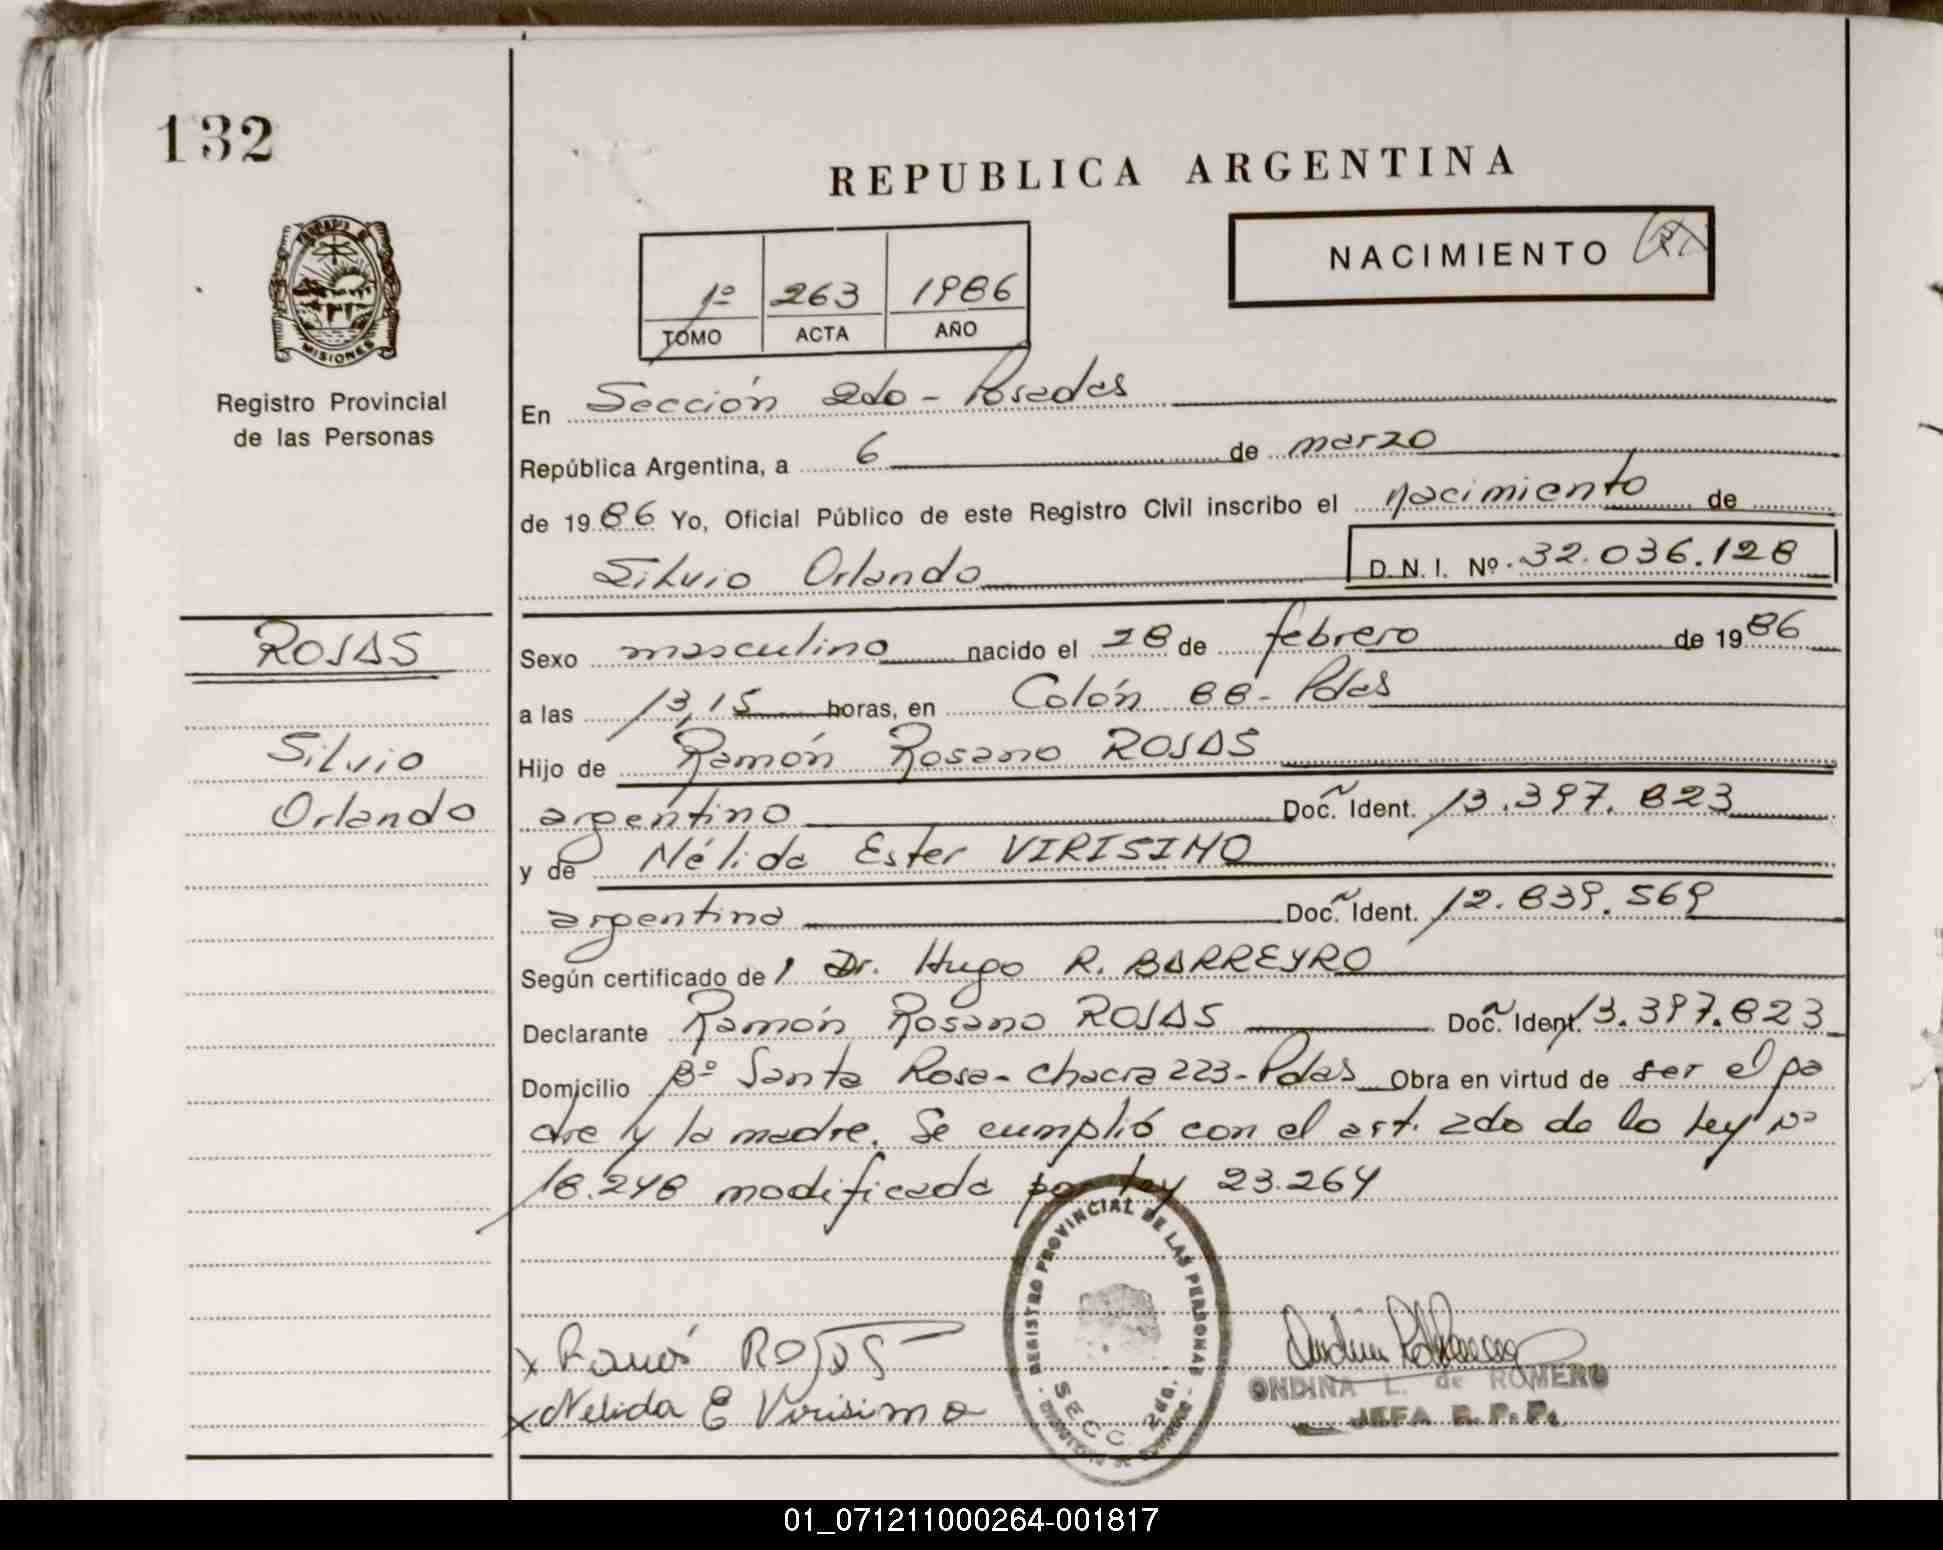 132
REPUBLICA ARGENTINA
NACIMIENTO
1º 263 1986
TOMO ACTA AÑO
MISIONES
Registro Provincial
de las Personas
En Sección 2do - Posadas
República Argentina, a 6 de marzo
de 1986 Yo, Oficial Público de este Registro Civil inscribo el nacimiento de
Silvio Orlando D.N.I. Nº 32.036.128
ROJAS
Silvio
Orlando
Sexo masculino nacido el 28 de febrero de 1986
a las 13,15 horas, en Colón 88 - Pdas
Hijo de Ramón Rosano ROJAS
argentino Doc. Ident. 13.397.823
y de Nélida Ester VIRISIMO
argentina Doc. Ident. 12.839.569
Según certificado de Dr. Hugo R. BARREYRO
Declarante Ramón Rosano ROJAS Doc. Ident. 13.397.823
Domicilio Bº Santa Rosa - chacra 223 - Pdas Obra en virtud de ser el pa
dre y la madre. Se cumplió con el art. 2do de la Ley nº
18.248 modificada por ley 23.264
REGISTRO PROVINCIAL DE LAS PERSONAS
SECC. 2da.
x Ramón ROJAS
x Nelida E Virisimo
ONDINA L. de ROMERO
JEFA R. P. P.
01_071211000264-001817